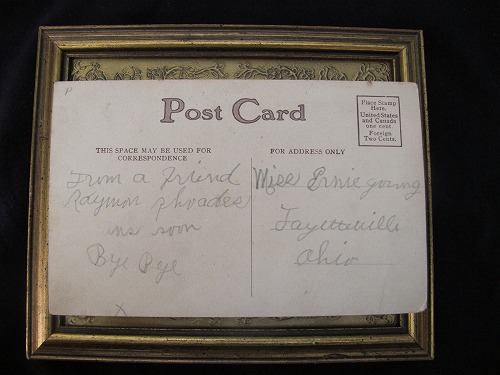 P
Post Card
Place Stamp
Here.
United States
and Canada
one cent.
Foreign
Two Cents.
THIS SPACE MAY BE USED FOR
CORRESPONDENCE
FOR ADDRESS ONLY
From a friend
Raymon Rhoades
ans soon
Bye Bye
X
Miss Ernie young
Fayetteville
Ohio